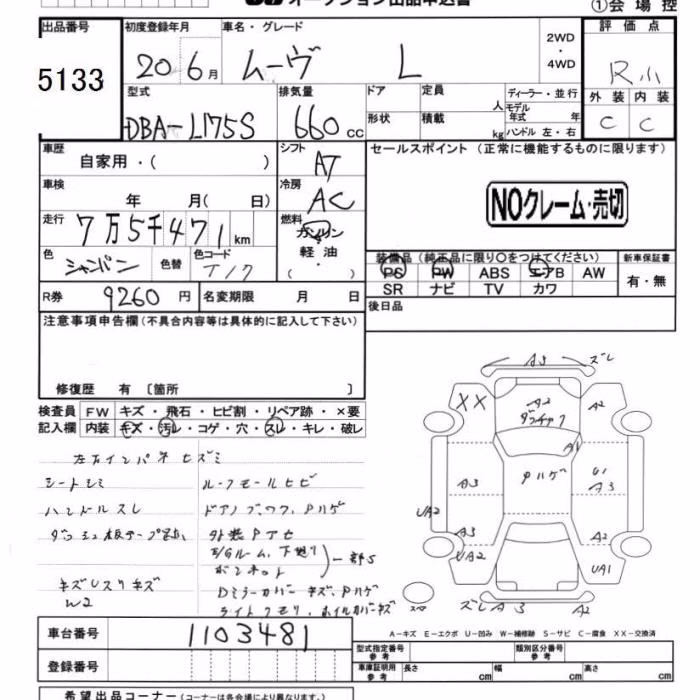 ①会場控
出品番号 初度登録年月 車名・グレード 2WD・4WD 評価点
5133 20 6月 ムーヴ L R小
型式 排気量 ドア 定員 人 ディーラー・並行 外装 内装
DBA-L175S 660 cc 形状 積載 kg モデル年式 年 ハンドル 左・右 C C
車歴 自家用・( ) シフト AT セールスポイント (正常に機能するものに限ります)
車検 年 月( 日) 冷房 AC
NOクレーム・売切
走行 7万5千471km 燃料 ガソリン
軽油・( )
色 シャンパン 色替 色コード T17
装備品(純正品に限り○をつけてください) 新車保証書
PS PW ABS エアB AW 有・無
SR ナビ TV カワ
R券 9260円 名変期限 月 日 後日品
注意事項申告欄(不具合内容等は具体的に記入して下さい)
修復歴 有〔箇所 〕
検査員 FW キズ・飛石・ヒビ割・リペア跡・×要
記入欄 内装 キズ・汚レ・コゲ・穴・スレ・キレ・破レ
左右インパネ ヒズミ
シートシミ
ハンドルスレ
ルーフモールヒビ
外装Pアセ
E/Gルーム、下廻り
ボンネット
一部S
Dミラーカバー キズ、Pハゲ
ライトクモリ、ホイルカバーキズ
W2
A3 ズレ
XX A2 A2
A1
A3 Pハゲ U1 A3
UA2 A3 A2
UA2 UA1
ズレ A3 A2
車台番号 1103481
A-キズ E-エクボ U-凹み W-補修跡 S-サビ C-腐食 XX-交換済
型式指定番号 参考 類別区分番号 参考
車庫証明用 参考 長さ cm 幅 cm 高さ cm
登録番号
希望出品コーナー(コーナーは各会場異なります。)